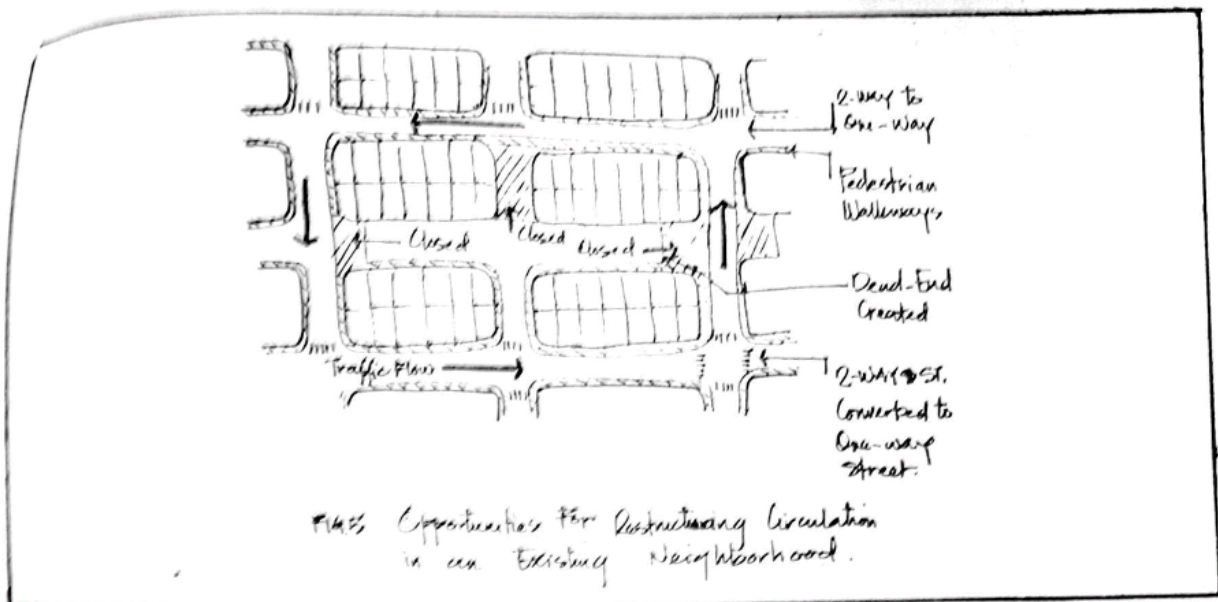 2-way to
One-Way
Pedestrian
Walkways
Closed
Closed
Closed
Dead-End
Created
Traffic Flow
2-WAY ST.
Converted to
One-way
Street.
Opportunities For Restructuring Circulation
in an Existing Neighborhood.